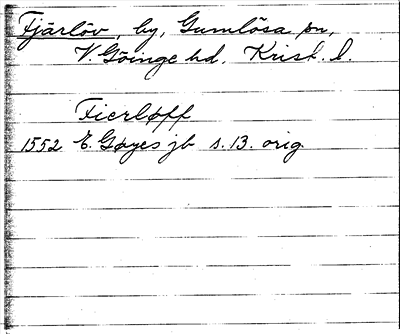 Fjärlöv, by, Gumlösa sn,
V. Göinge hd. Krist. l.
Fierløff
1552 E. Gøyes jb s. 13. orig.